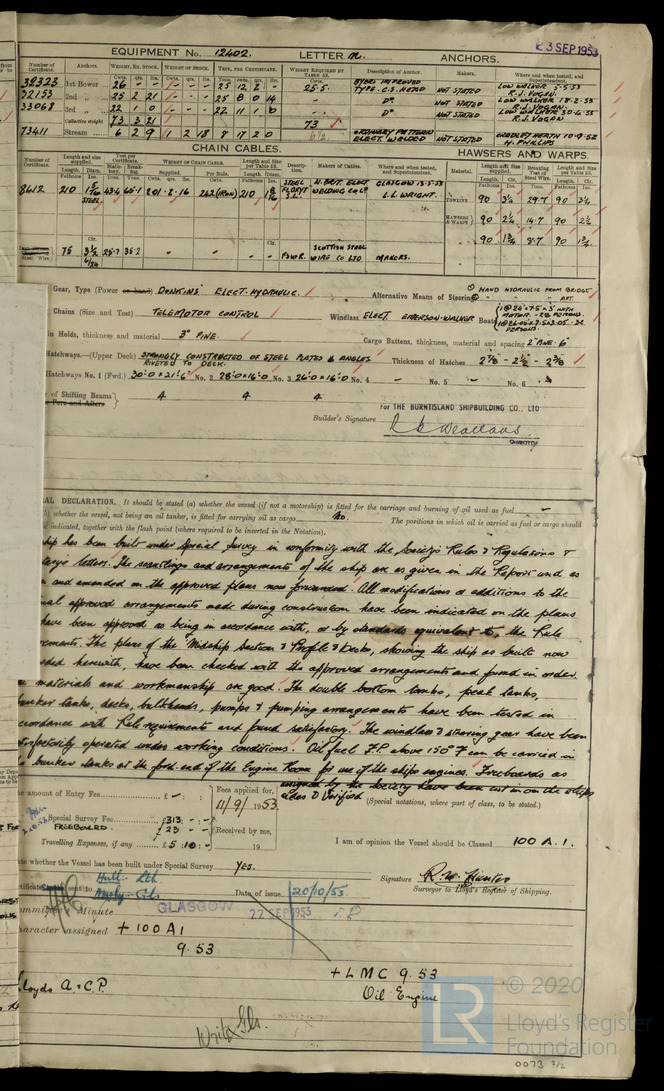 23 SEP 1953
EQUIPMENT No. 12402. LETTER M. ANCHORS.
Number of Certificate. Anchors. WEIGHT, EX. STOCK. WEIGHT OF STOCK. TEST, PER CERTIFICATE. WEIGHT REQUIRED BY TABLE 53. Description of Anchor. Makers. Where and when tested, and Superintendent.
Cwts. qrs. lbs. Cwts. qrs. lbs. Tons. cwts. qrs. lbs. Cwts.
32323 1st Bower 26 - - - - - 25 12 2 - 25.5 BYERS IMPROVED TYPE. C.S. HEAD NOT STATED LOW WALKER 5-5-53 R.J. VOGAN.
32153 2nd 25 2 21 - - - 25 8 0 14 Do NOT STATED LOW WALKER 18-2-53 R.J. VOGAN.
33068 3rd 22 1 0 - - - 22 11 1 0 Do NOT STATED LOW WALKER 30-4-53 R.J. VOGAN
Collective weight 73 3 21 73
73411 Stream 6 2 9 1 2 18 8 17 2 0 6½ ORDINARY PATTERN ELECT. WELDED NOT STATED CRADLEY HEATH 10-9-52 H. PHILLIPS
CHAIN CABLES. HAWSERS AND WARPS.
Number of Certificate. Length and size supplied. Test per Certificate. WEIGHT OF CHAIN CABLE. Length and Size per Table 53. Description. Makers of Cables. Where and when tested, and Superintendent. Material. Length and Size supplied. Breaking Test of Steel Wire. Length and Size per Table 53.
Length. Diam. Supplied. Per Rule. Length. Diam. Length. Cir. Length. Cir.
Fathoms Ins. Tons. Tons. Cwts. qrs. lbs. Cwts. Fathoms Ins. Fathoms Ins. Tons. Fathoms Ins.
8612 210 1 5/16 STEEL 43.4 65.1 201-2-16 242 (IRON) 210 STEEL N. BRIT. ELECT WELDING CO LD GLASGOW 13-5-53 L.L. WRIGHT. TOWLINE 90 3¼ 29.7 90 3¼
HAWSERS & WARPS 90 2¼ 14.7 90 2¼
90 1¾ 8.7 90 1¾
Steel Wire 75 3½ 6/24 - - - SCOTTISH STEEL WIRE CO LTD MAKERS.
Gear, Type (Power or hand) DONKINS ELECT-HYDRAULIC. Alternative Means of Steering ① HAND HYDRAULIC FROM BRIDGE
② " " AFT.
Chains (Size and Test) TELEMOTOR CONTROL Windlass ELECT EMERSON-WALKER Boats
in Holds, thickness and material 3" PINE. Cargo Battens, thickness, material and spacing 2" PINE - 6"
Hatchways.—(Upper Deck) STRONGLY CONSTRUCTED OF STEEL PLATES & ANGLES RIVETED TO DECK. Thickness of Hatches 2⅜ - 2½ - 2⅜
Hatchways No. 1 (Fwd.) 30'-0 x 21'-6" No. 2 28'-0 x 16'-0 No. 3 26'-0 x 16'-0 No. 4 - No. 5 - No. 6 -
of Shifting Beams 4 4 4
For THE BURNTISLAND SHIPBUILDING CO., LTD
Builder's Signature
DIRECTOR
AL DECLARATION. It should be stated (a) whether the vessel (if not a motorship) is fitted for the carriage and burning of oil used as fuel -
(b) whether the vessel, not being an oil tanker, is fitted for carrying oil as cargo No. The positions in which oil is carried as fuel or cargo should
be indicated, together with the flash point (where required to be inserted in the Notation).
ship has been built under Special Survey in conformity with the Society's Rules & Regulations &
letters. The scantlings and arrangements of the ship are as given in the Report and as
and amended on the approved plans now forwarded. All modifications or additions to the
nal approved arrangements made during construction have been indicated on the plans
have been approved as being in accordance with, or by standards equivalent to, the Rule
rements. The plans of the Midship Section & Profile & Decks, showing the ship as built now
ded herewith, have been checked with the approved arrangements and found in order.
materials and workmanship are good. The double bottom tanks, peak tanks,
bunker tanks, decks, bulkheads, pumps & pumping arrangements have been tested in
cordance with Rule requirements and found satisfactory. The windlass & steering gear have been
satisfactorily operated under working conditions. Oil fuel F.P. above 150°F can be carried in
bunker tanks at the ford. end of the Engine Room for use of the ships engines. Freeboards as
assigned by the Society have been cut in on the ships
sides & Verified
(Special notations, where part of class, to be stated.)
amount of Entry Fee £ - : Fees applied for, 11/9/1953.
Special Survey Fee £313 : - : -
FREEBOARD. £23 - - Received by me,
Travelling Expenses, if any £5 : 10 : - 19
I am of opinion the Vessel should be Classed 100 A.1.
whether the Vessel has been built under Special Survey Yes.
Signature R.W. Hunter
Surveyor to Lloyd's Register of Shipping.
Date of issue 20/10/53
Committee Minute GLASGOW 22 SEP 1953
Character assigned + 100 A1
9.53
+ LMC 9.53
Oil Engine
Lloyds A & C.P.
Write Gls.
LR
© 2020
Lloyd's Register
Foundation
0073 2/2